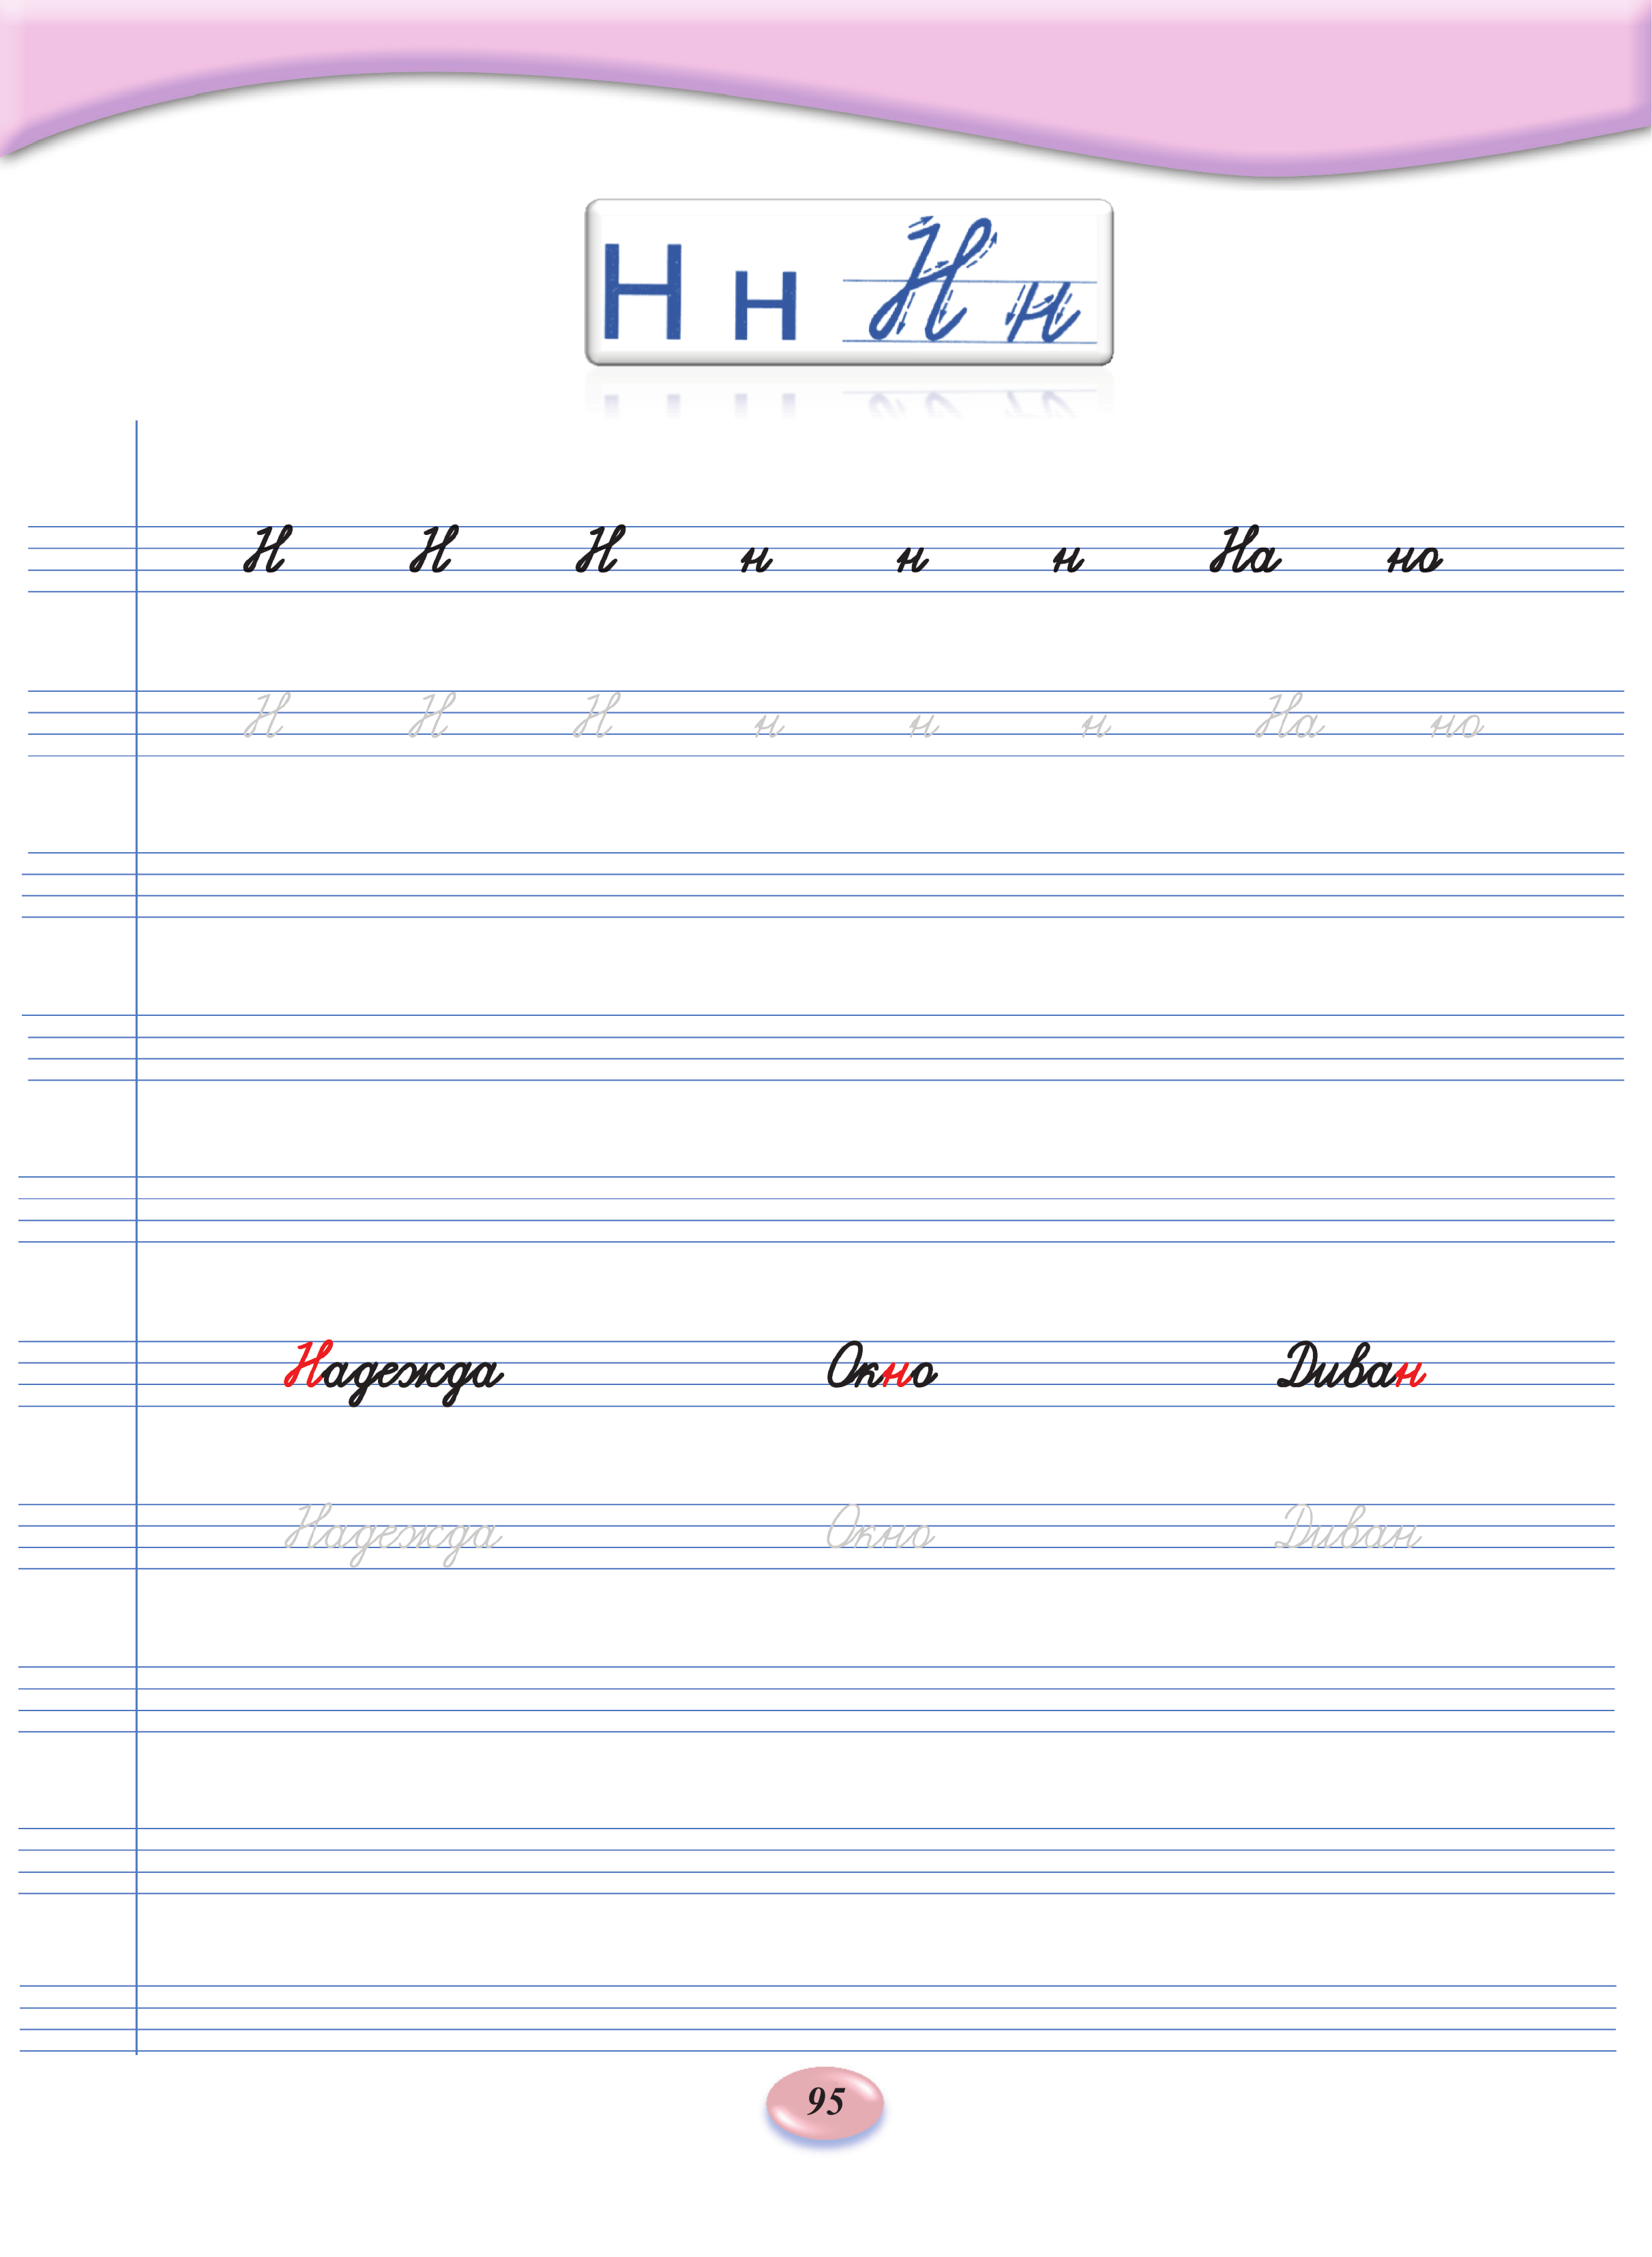 Н н Н н
Н Н Н н н н На но
Н Н Н н н н На но
Надежда Окно Диван
Надежда Окно Диван
95